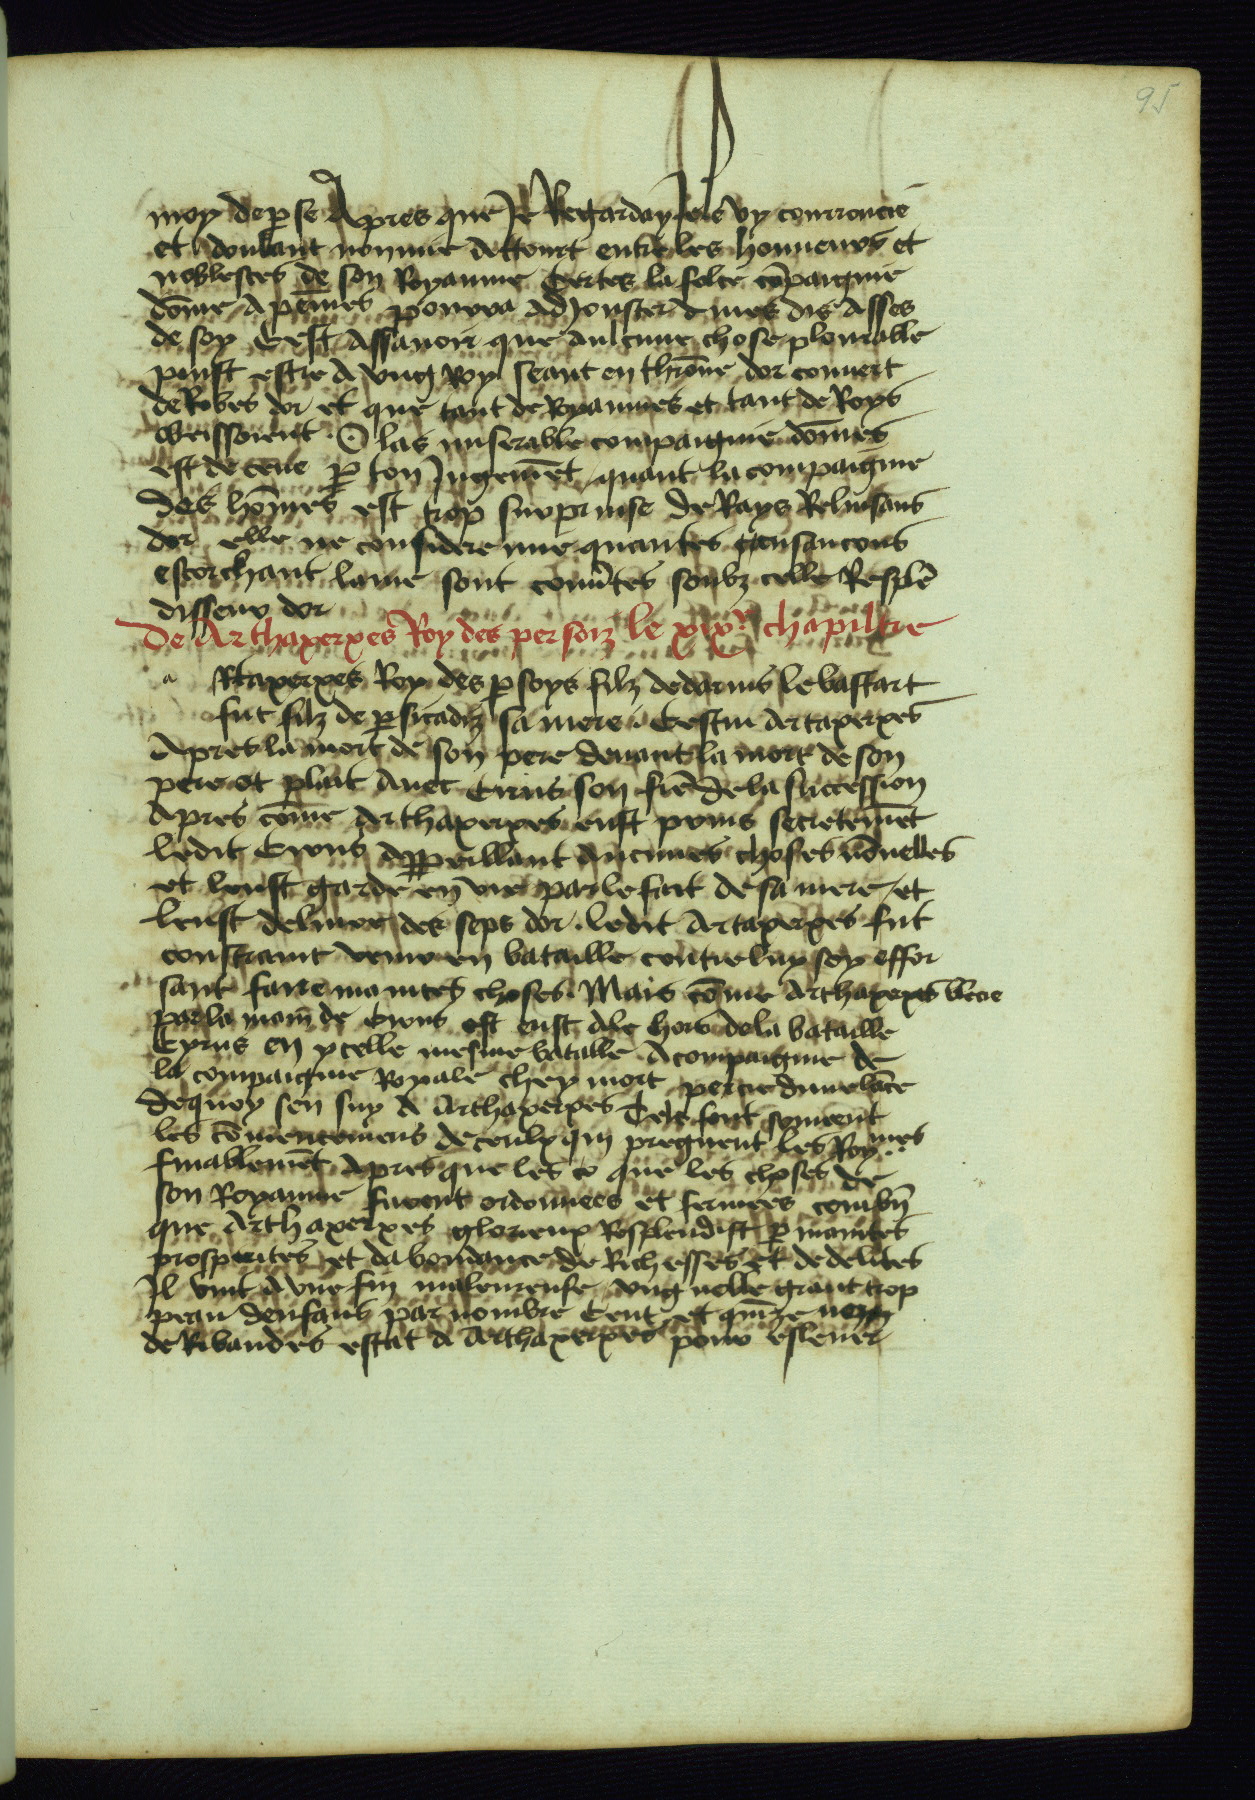 95
moy de p̱se Apres que Je Regarday Je le vy courroucie
et doubtant non mie de tout entre les honneurs et
noblesces de son Royaume Certes la folce cōpaignie
dōme A peines pourra adjouster A mes dis Asses
de foy Cest Assavoir que aulcune chose plourable
puist estre A ung Roy seant en thrōne dor couvert
de Robes dor et que tant de Royaumes et tant de Roys
obeissoient . O las miserable compaignie dōmes
est deceue p̱ ton Jugemēt quant la compaignie
des hōmes est trop surprinse de Rays Reluisans
dor elle ne considere mie quantes cusancons
escorchant lame sont couv̄tes soubz celle Resplē
disseur dor
De Arthaxerxes Roy des persois le xixe chapiltre
a Rtaxerxes Roy des p̱soys filz de darius le bastart
fut filz de p̱sicadis sa mere . Cestui Artaxerxes
Apres la mort de son pere devant la mort de son
pere ot plait Avec Cirus son frē de la succession
Apres cōme Arthaxerxes eust prins secretemēt
ledit Cirus app̱eillant Aucunes choses nōuelles
et leust garde en vie par le fait de sa mere et
leust delivre des seps dor . ledit Artaxerxes fut
constraint venir en bataille contre luy soy effor
sant faire maintes choses . Mais cōme Arthaxerxes blecie
par la main de Cirus est eust Ale hors de la bataille
Cyrus en ycelle mesme bataille Acompaignie de
la compaignie Royale chey mort percie dune lāce
de quoy sen suy A Arthaxerxes Tels sont souvent
les cōmencemens de ceulx qui preignent les Roy mes
finablemēt Apres que les que les choses de
son Royaume furent ordonnees et fermees combn̄
que Arthaxerxes glorieux Resplendist p̱ maintes
prosperites et dabondance de Richesses et de delices
Il vint A une fin maleureuse ung noble grant trop
peau denfans par nombre Cent et quīze nez
de Ribaudes estat A Arthaxerxes pour eslever